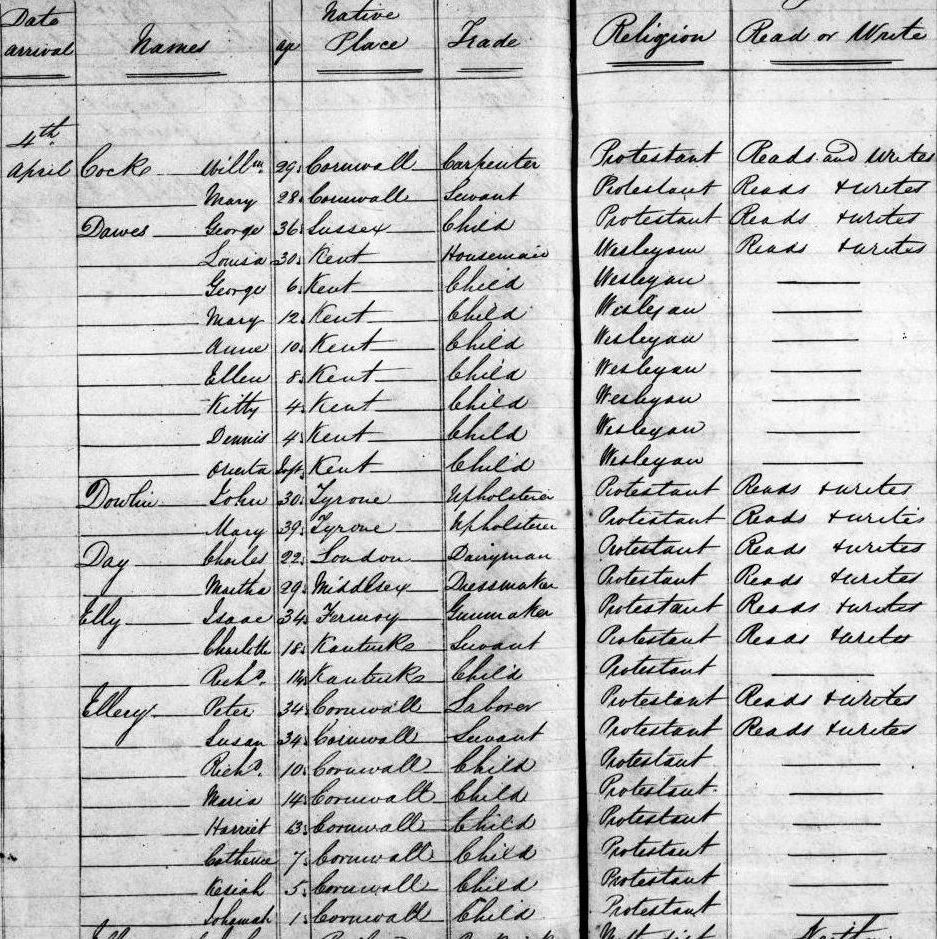 Date arrival Names age Native Place Trade Religion Read or Write
4th
April Cock Willm. 29 Cornwall Carpenter Protestant Reads and Writes
Mary 28 Cornwall Servant Protestant Reads & writes
Dawes George 36 Sussex Child Protestant Reads & writes
Louisa 30 Kent Housemaid Wesleyan Reads & writes
George 6 Kent Child Wesleyan
Mary 12 Kent Child Wesleyan
Anne 10 Kent Child Wesleyan
Ellen 8 Kent Child Wesleyan
Kitty 4 Kent Child Wesleyan
Dennis 4 Kent Child Wesleyan
Kent Child Wesleyan
Dowlin John 30 Tyrone Upholsterer Protestant Reads & writes
Mary 39 Tyrone Upholsterer Protestant Reads & writes
Day Charles 22 London Dairyman Protestant Reads & writes
Martha 29 Middlsex Dressmaker Protestant Reads & writes
Elly Isaac 34 Fermoy Gunmaker Protestant Reads & writes
Charlotte 18 Kanturk Servant Protestant Reads & writes
Richd. Kanturk Child Protestant
Ellery Peter 34 Cornwall Laborer Protestant Reads & writes
Susan 34 Cornwall Servant Protestant Reads & writes
Richd. 10 Cornwall Child Protestant
Maria 14 Cornwall Child Protestant
Harriet 13 Cornwall Child Protestant
Catherine 7 Cornwall Child Protestant
Kesiah 5 Cornwall Child Protestant
Johanah 1 Cornwall Child Protestant